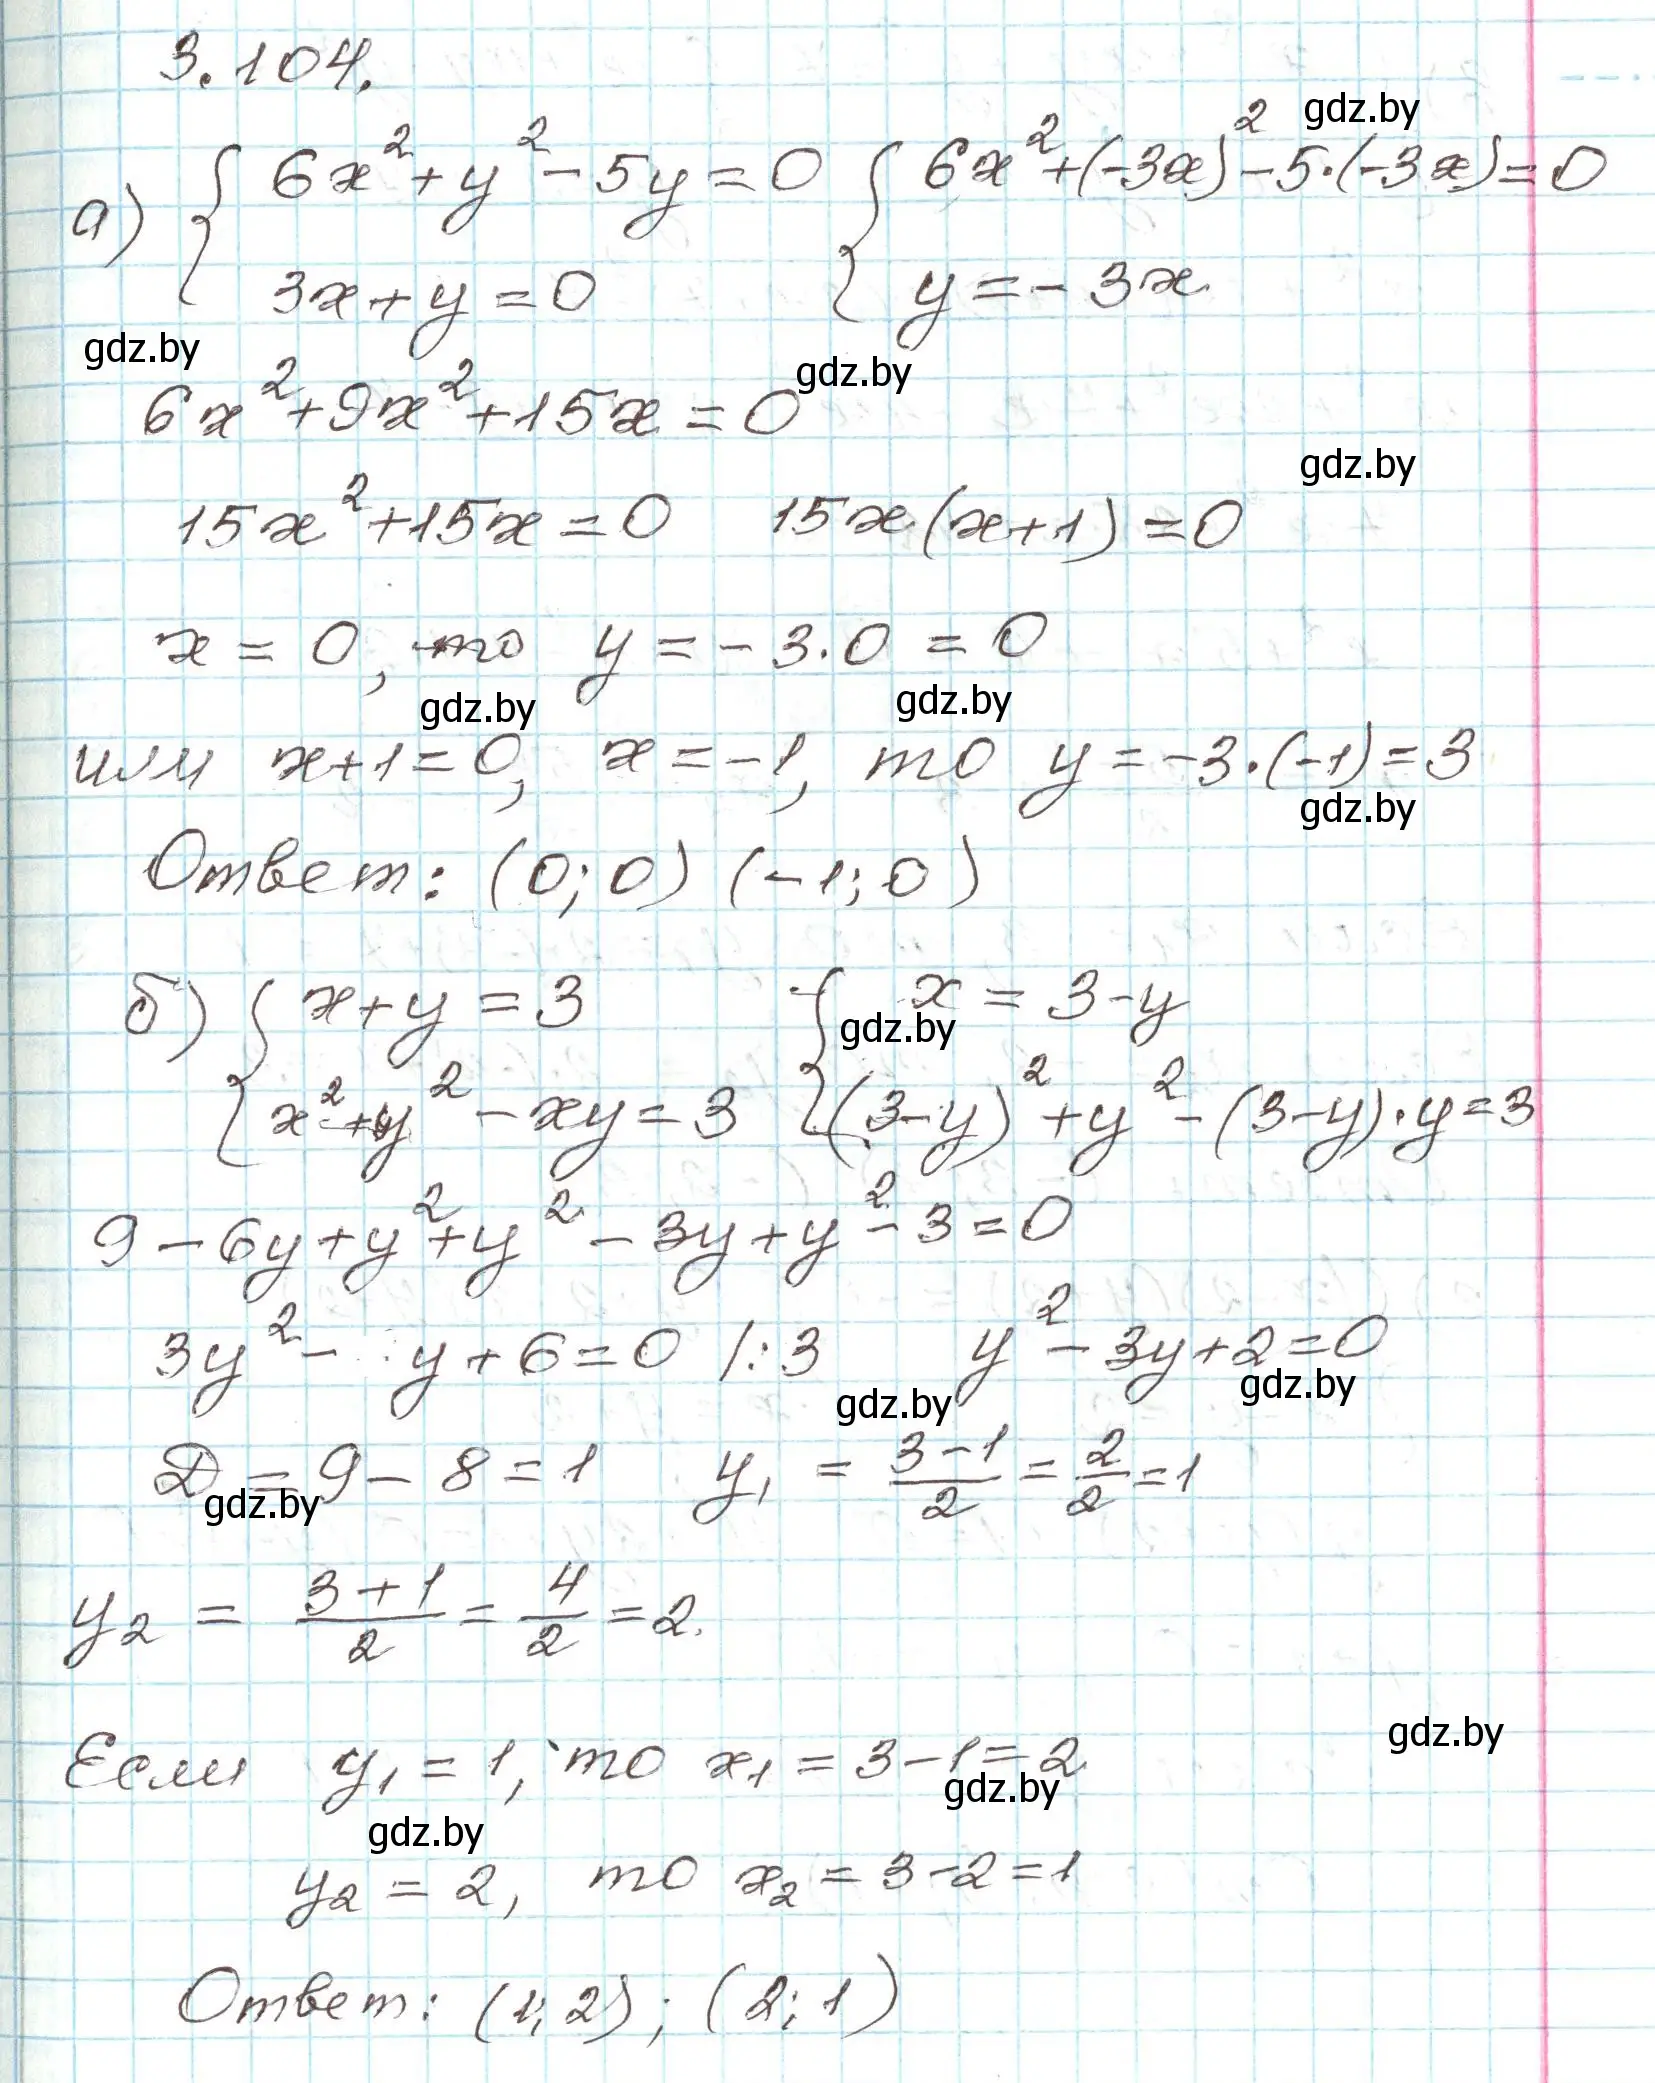 3.104.
gdz.by
а) { 6x² + y² - 5y = 0 { 6x² + (-3x)² - 5·(-3x) = 0
3x + y = 0 y = -3x
gdz.by gdz.by
6x² + 9x² + 15x = 0
gdz.by
15x² + 15x = 0 15x(x+1) = 0
x = 0, то y = -3·0 = 0
gdz.by gdz.by
или x+1=0, x=-1, то y=-3·(-1)=3
gdz.by
Ответ: (0; 0) (-1; 0)
б) { x+y = 3 { x = 3-y
gdz.by
x² + y² - xy = 3 (3-y)² + y² - (3-y)·y = 3
9 - 6y + y² + y² - 3y + y² - 3 = 0
3y² - y + 6 = 0 |:3 y² - 3y + 2 = 0
gdz.by gdz.by
Д = 9 - 8 = 1 y₁ = (3-1)/2 = 2/2 = 1
gdz.by
y₂ = (3+1)/2 = 4/2 = 2.
gdz.by
Если y₁ = 1, то x₁ = 3-1 = 2
gdz.by gdz.by
y₂ = 2, то x₂ = 3-2 = 1
Ответ: (1; 2); (2; 1)